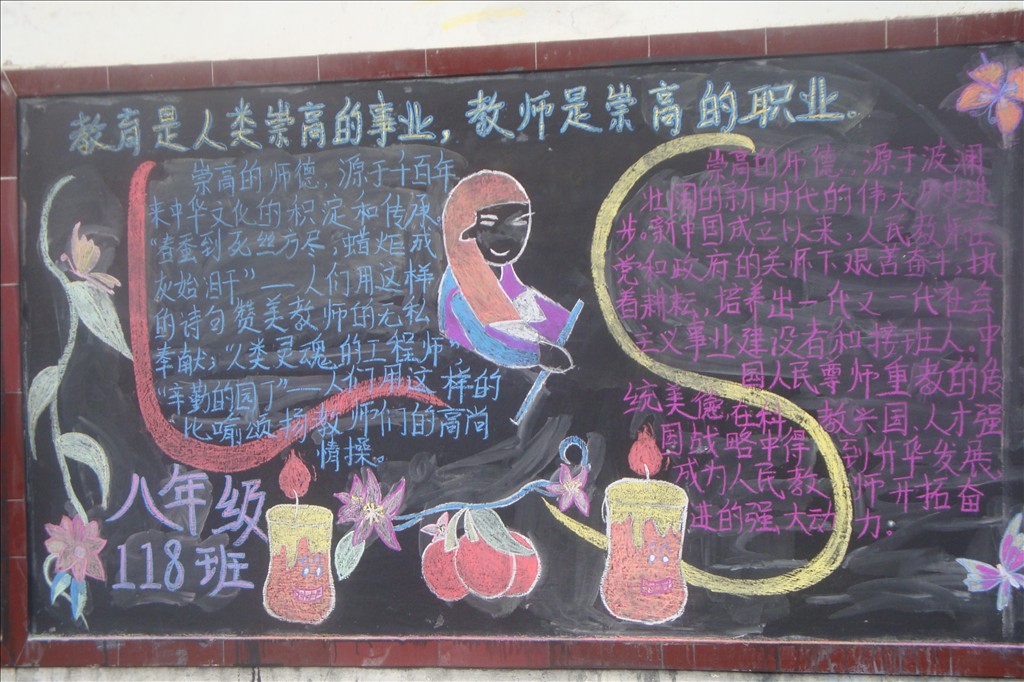 教育是人类崇高的事业，教师是崇高的职业。
崇高的师德，源于千百年
来中华文化的积淀和传承
“春蚕到死丝方尽；蜡炬成
灰始泪干”—人们用这样
的诗句赞美教师的无私
奉献；“人类灵魂的工程师”，
“辛勤的园丁”—人们用这样的
比喻颂扬教师们的高尚
情操。
八年级
118班
崇高的师德，源于波澜
壮阔的新时代的伟大历史进
步。新中国成立以来，人民教师在
党和政府的关怀下艰苦奋斗，执
着耕耘，培养出一代又一代社会
主义事业建设者和接班人。中
国人民尊师重教的传
统美德，在科教兴国、人才强
国战略中得到升华发展，
成为人民教师开拓奋
进的强大动力。